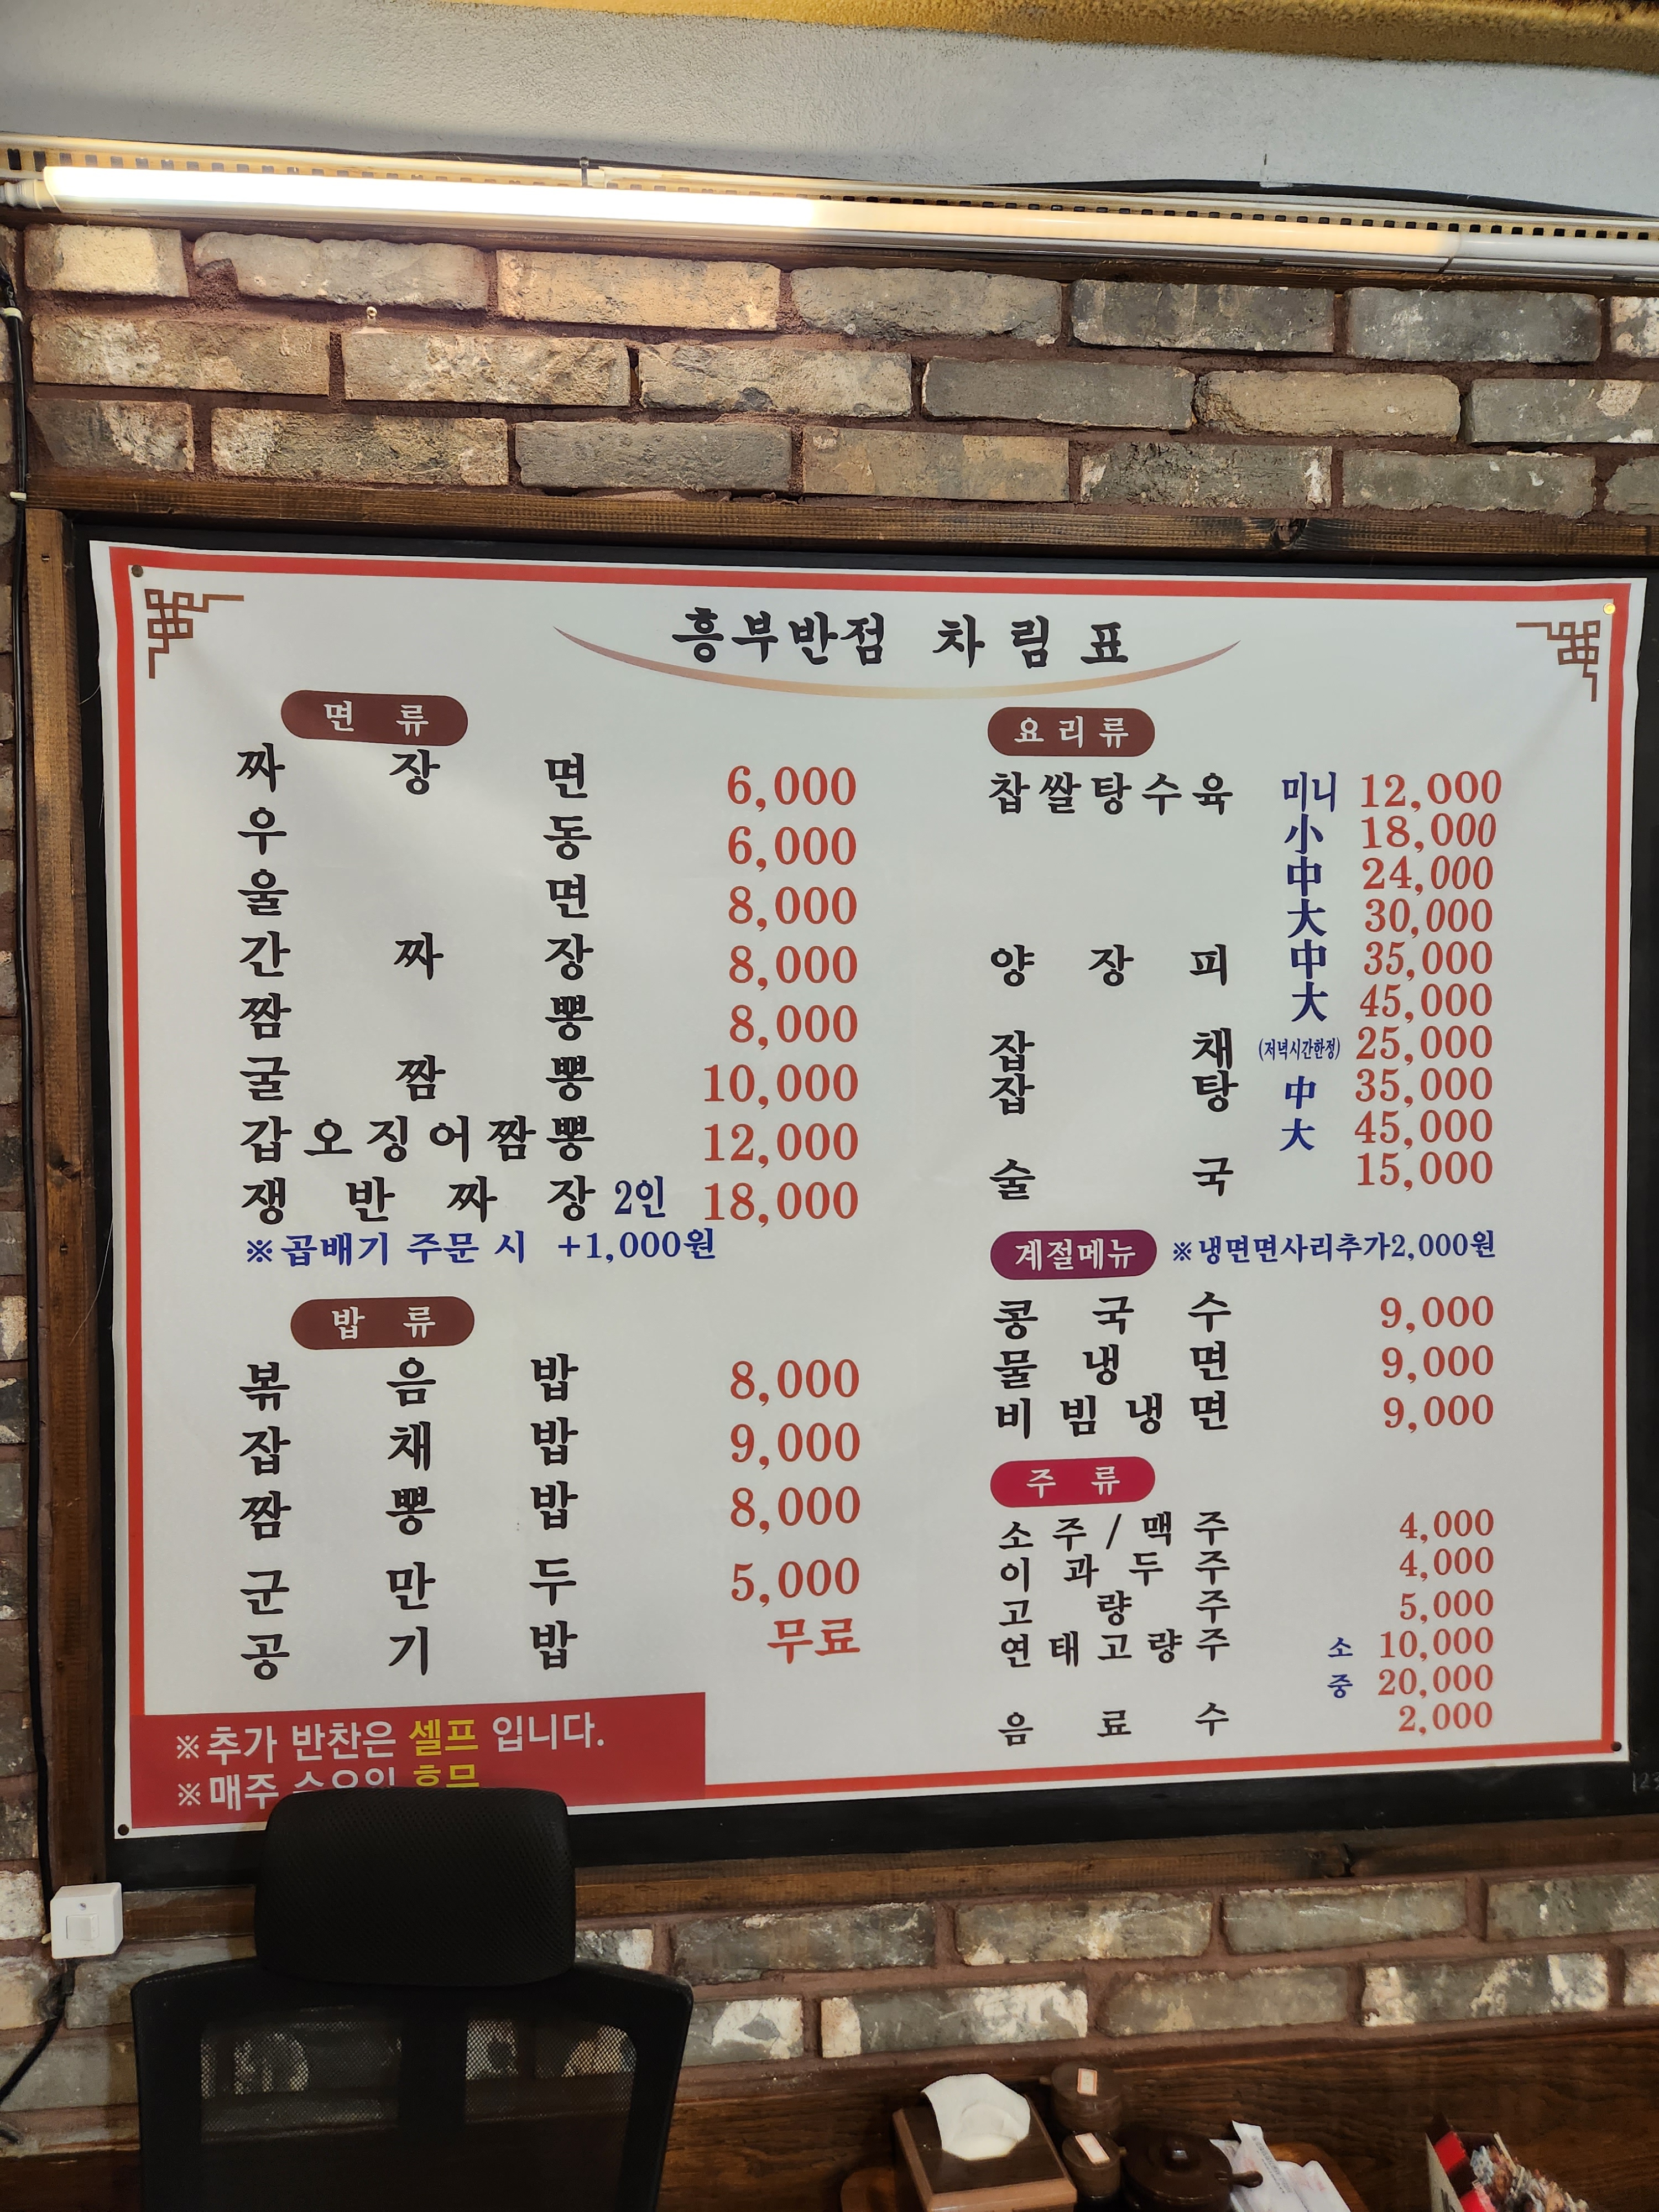 흥부반점 차림표
면류
짜장면 6,000
우동 6,000
울면 8,000
간짜장 8,000
짬뽕 8,000
굴짬뽕 10,000
갑오징어짬뽕 12,000
쟁반짜장 2인 18,000
※곱배기 주문 시 +1,000원
밥류
볶음밥 8,000
잡채밥 9,000
짬뽕밥 8,000
군만두 5,000
공기밥 무료
※추가 반찬은 셀프 입니다.
※매주
요리류
찹쌀탕수육 미니 12,000
小 18,000
中 24,000
大 30,000
양장피 中 35,000
大 45,000
잡채 (저녁시간한정) 25,000
잡탕 中 35,000
大 45,000
술국 15,000
계절메뉴 ※냉면면사리추가2,000원
콩국수 9,000
물냉면 9,000
비빔냉면 9,000
주류
소주/맥주 4,000
이과두주 4,000
고량주 5,000
연태고량주 소 10,000
중 20,000
음료수 2,000